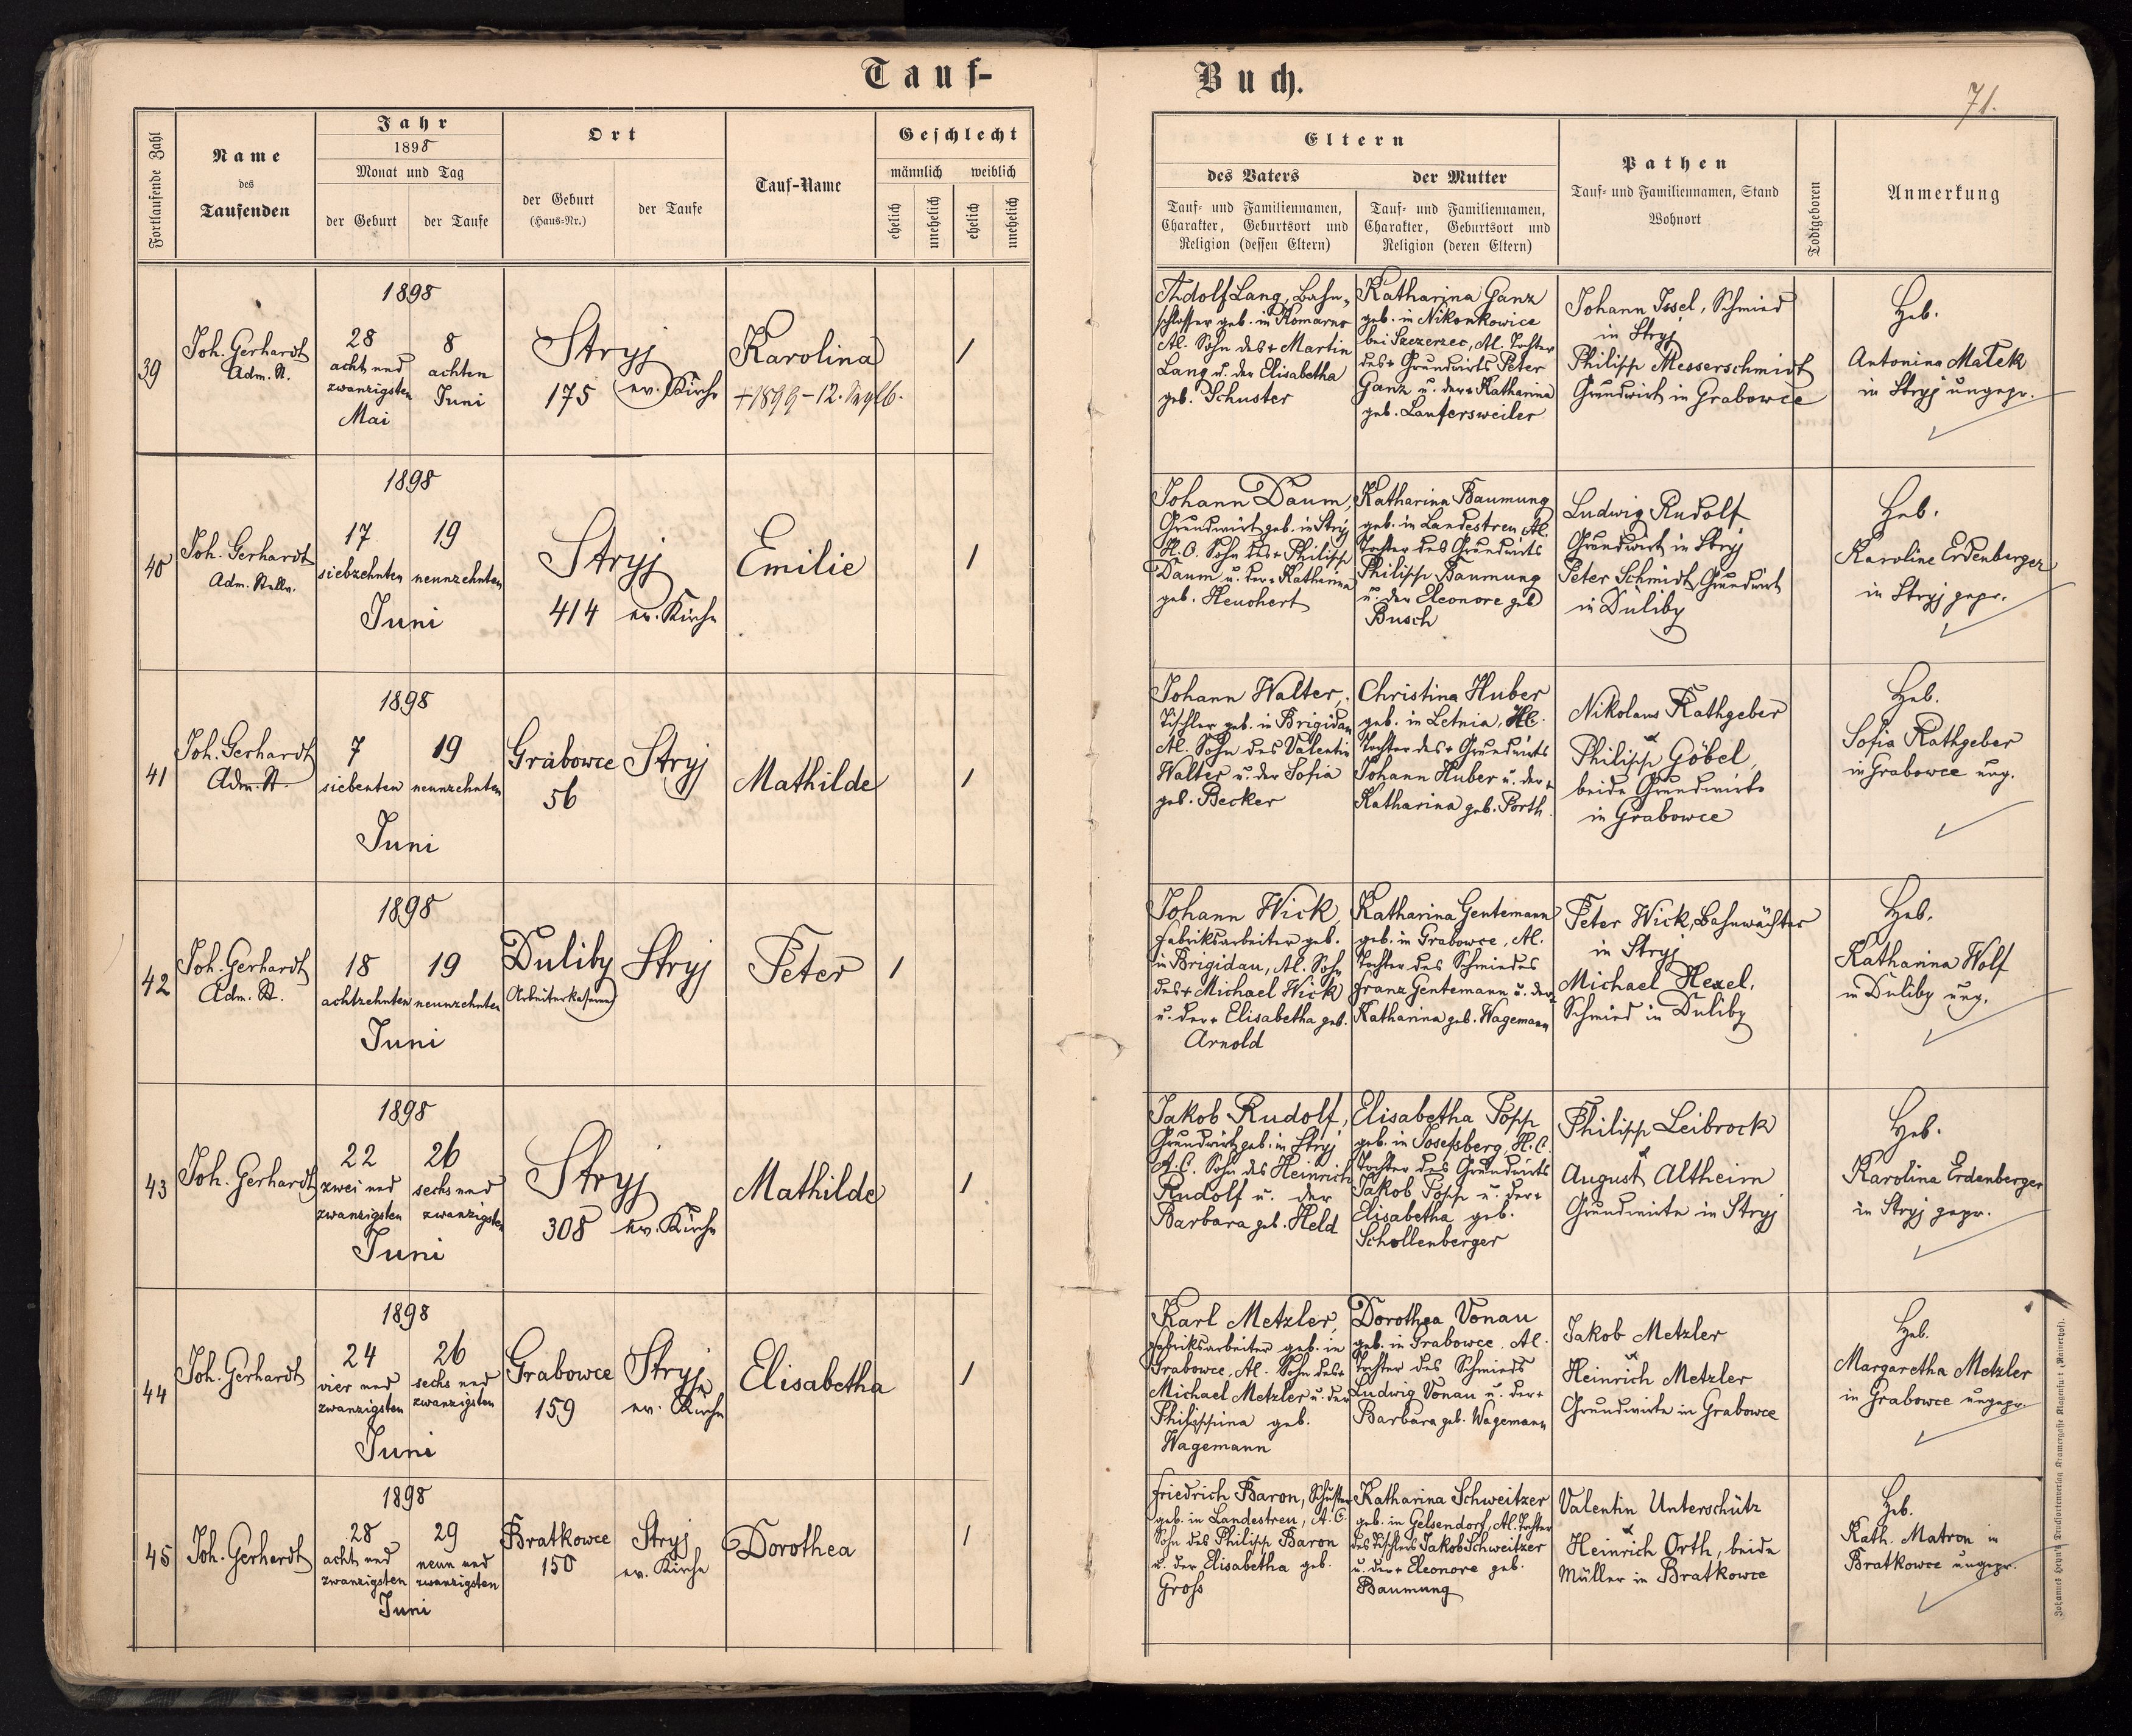 Tauf-
Buch.
71.
Fortlaufende Zahl
Name
des
Taufenden
Jahr
1898
Monat und Tag
der Geburt
der Taufe
Ort
der Geburt
(Haus-Nr.)
der Taufe
Tauf-Name
Geschlecht
männlich
weiblich
ehelich
unehelich
ehelich
unehelich
Eltern
des Vaters
der Mutter
Tauf- und Familiennamen,
Charakter, Geburtsort und
Religion (dessen Eltern)
Tauf- und Familiennamen,
Charakter, Geburtsort und
Religion (deren Eltern)
Pathen
Tauf- und Familiennamen, Stand
Wohnort
Todtgeboren
Anmerkung
39
Joh. Gerhardt
Adm. St.
1898
28
acht und
zwanzigsten
Mai
8
achten
Juni
Stryj
175
ev. Kirche
Karolina
+1899-12.
1
Adolf Lang, Bahn-
schlosser geb. in Komarno
Al. Sohn des + Martin
Lang u. der Elisabetha
geb. Schuster
Katharina Ganz
geb. in Nikonkowice
bei Szczerzec, Al. Tochter
des + Grundwirts Peter
Ganz u. der + Katharina
geb. Laufersweiler
Johann Issel, Schmied
in Stryj
Philipp Messerschmidt
Grundwirt in Grabowce
Heb.
Antonina Małek
in Stryj ungepr.
40
Joh. Gerhardt
Adm. Stellv.
1898
17
siebzehnten
19
neunzehnten
Juni
Stryj
414
ev. Kirche
Emilie
1
Johann Daum,
Grundwirt geb. in Stryj
H.C. Sohn des + Philipp
Daum u. der + Katharina
geb. Heuchert
Katharina Baumung
geb. in Landestreu Al.
Tochter des Grundwirts
Philipp Baumung
u. der Eleonore geb
Busch
Ludwig Rudolf
Grundwirt in Stryj
Peter Schmidt, Grundwirt
in Duliby
Heb.
Karoline Erdenberger
in Stryj gepr.
41
Joh. Gerhardt
Adm. St.
1898
7
siebenten
19
neunzehnten
Juni
Grabowce
56
Stryj
Mathilde
1
Johann Walter,
Tischler geb. in Brigidau
Al. Sohn des Valentin
Walter u. der Sofia
geb. Becker
Christina Huber
geb. in Letnia, H.C.
Tochter des + Grundwirts
Johann Huber u. der +
Katharina geb. Porth.
Nikolaus Rathgeber
&
Philipp Göbel,
beide Grundwirte
in Grabowce
Heb.
Sofia Rathgeber
in Grabowce ung.
42
Joh. Gerhardt
Adm. St.
1898
18
achtzehnten
19
neunzehnten
Juni
Duliby
Arbeiterkaserne
Stryj
Peter
1
Johann Wick,
Fabriksarbeiter geb.
in Brigidau, Al. Sohn
des + Michael Wick
u. der + Elisabetha geb.
Arnold
Katharina Gentemann
geb. in Grabowce, Al.
Tochter des Schmiedes
Franz Gentemann u. der
Katharina geb. Wagemann
Peter Wick, Bahnwächter
in Stryj
Michael Hexel,
Schmied in Duliby
Heb.
Katharina Wolf
in Duliby ung.
43
Joh. Gerhardt
1898
22
zwei und
zwanzigsten
26
sechs und
zwanzigsten
Juni
Stryj
308
ev. Kirche
Mathilde
1
Jakob Rudolf,
Grundwirt geb. in Stryj
A.C. Sohn des Heinrich
Rudolf u. der
Barbara geb. Held
Elisabetha Popp
geb. in Josefsberg, H.C.
Tochter des Grundwirts
Jakob Popp u. der +
Elisabetha geb.
Schollenberger
Philipp Leibrock
&
August Altheim
Grundwirte in Stryj
Heb.
Karolina Erdenberger
in Stryj gepr.
44
Joh. Gerhardt
1898
24
vier und
zwanzigsten
26
sechs und
zwanzigsten
Juni
Grabowce
159
Stryj
ev. Kirche
Elisabetha
1
Karl Metzler,
Fabriksarbeiter geb. in
Grabowce, Al. Sohn des +
Michael Metzler u. der
Philippina geb.
Wagemann
Dorothea Vonau
geb. in Grabowce, Al.
Tochter des Schmieds
Ludwig Vonau u. der +
Barbara geb. Wagemann
Jakob Metzler
&
Heinrich Metzler
Grundwirte in Grabowce
Heb.
Margaretha Metzler
in Grabowce ungepr.
45
Joh. Gerhardt
1898
28
acht und
zwanzigsten
29
neun und
zwanzigsten
Juni
Bratkowce
150
Stryj
ev. Kirche
Dorothea
1
Friedrich Baron, Schuster
geb. in Landestreu, A.C.
Sohn des Philipp Baron
u. der Elisabetha geb.
Groß
Katharina Schweitzer
geb. in Gelsendorf, Al. Tochter
des Tischlers Jakob Schweitzer
u. der + Eleonore geb.
Baumung
Valentin Unterschütz
&
Heinrich Orth, beide
Müller in Bratkowce
Heb.
Kath. Matron in
Bratkowce ungepr.
Johannes Heyn's Drucksortenverlag Kramergasse Klagenfurt (Kainerhof).